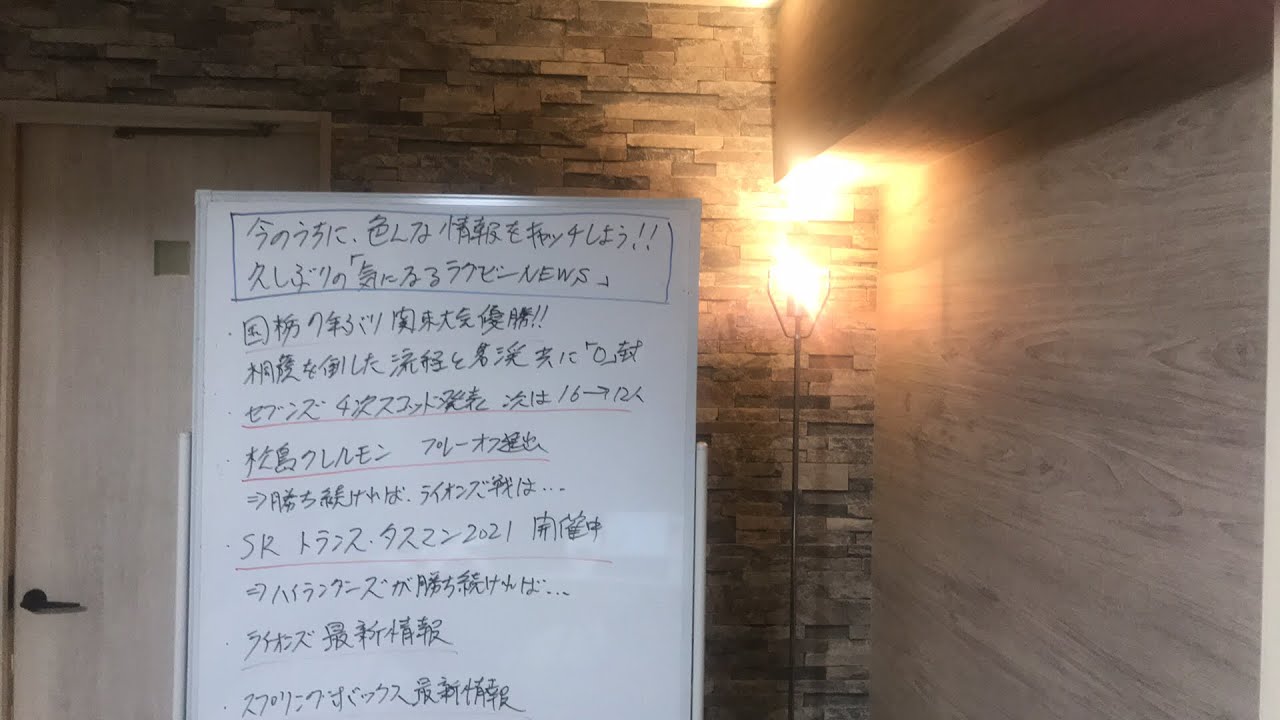 今のうちに、色んな情報をキャッチしよう!!
久しぶりの「気になるラグビーNEWS」
・国栃 7年ぶり 関東大会優勝!!
桐蔭を倒した流経と 共に「0」封
・セブンズ 4次スコッド発表 次は16→12人
・松島クレルモン プレーオフ進出
⇒勝ち続ければ、ライオンズ戦は…
・SR トランス・タスマン2021 開催中
⇒ハイランダーズが勝ち続ければ…
・ライオンズ 最新情報
・スプリングボックス最新情報